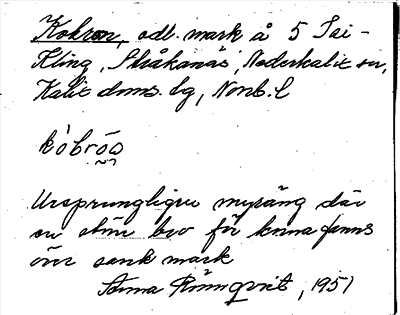 Kobron, odl. mark å 5 Sai-
Kling, Stråkanäs, Nederkalix sn,
Kalix doms. lg, Norrb. l
kòbrós
Ursprungligen myräng där
en stör bro för korna fanns
över sank mark
Anna Rönnqvist, 1951